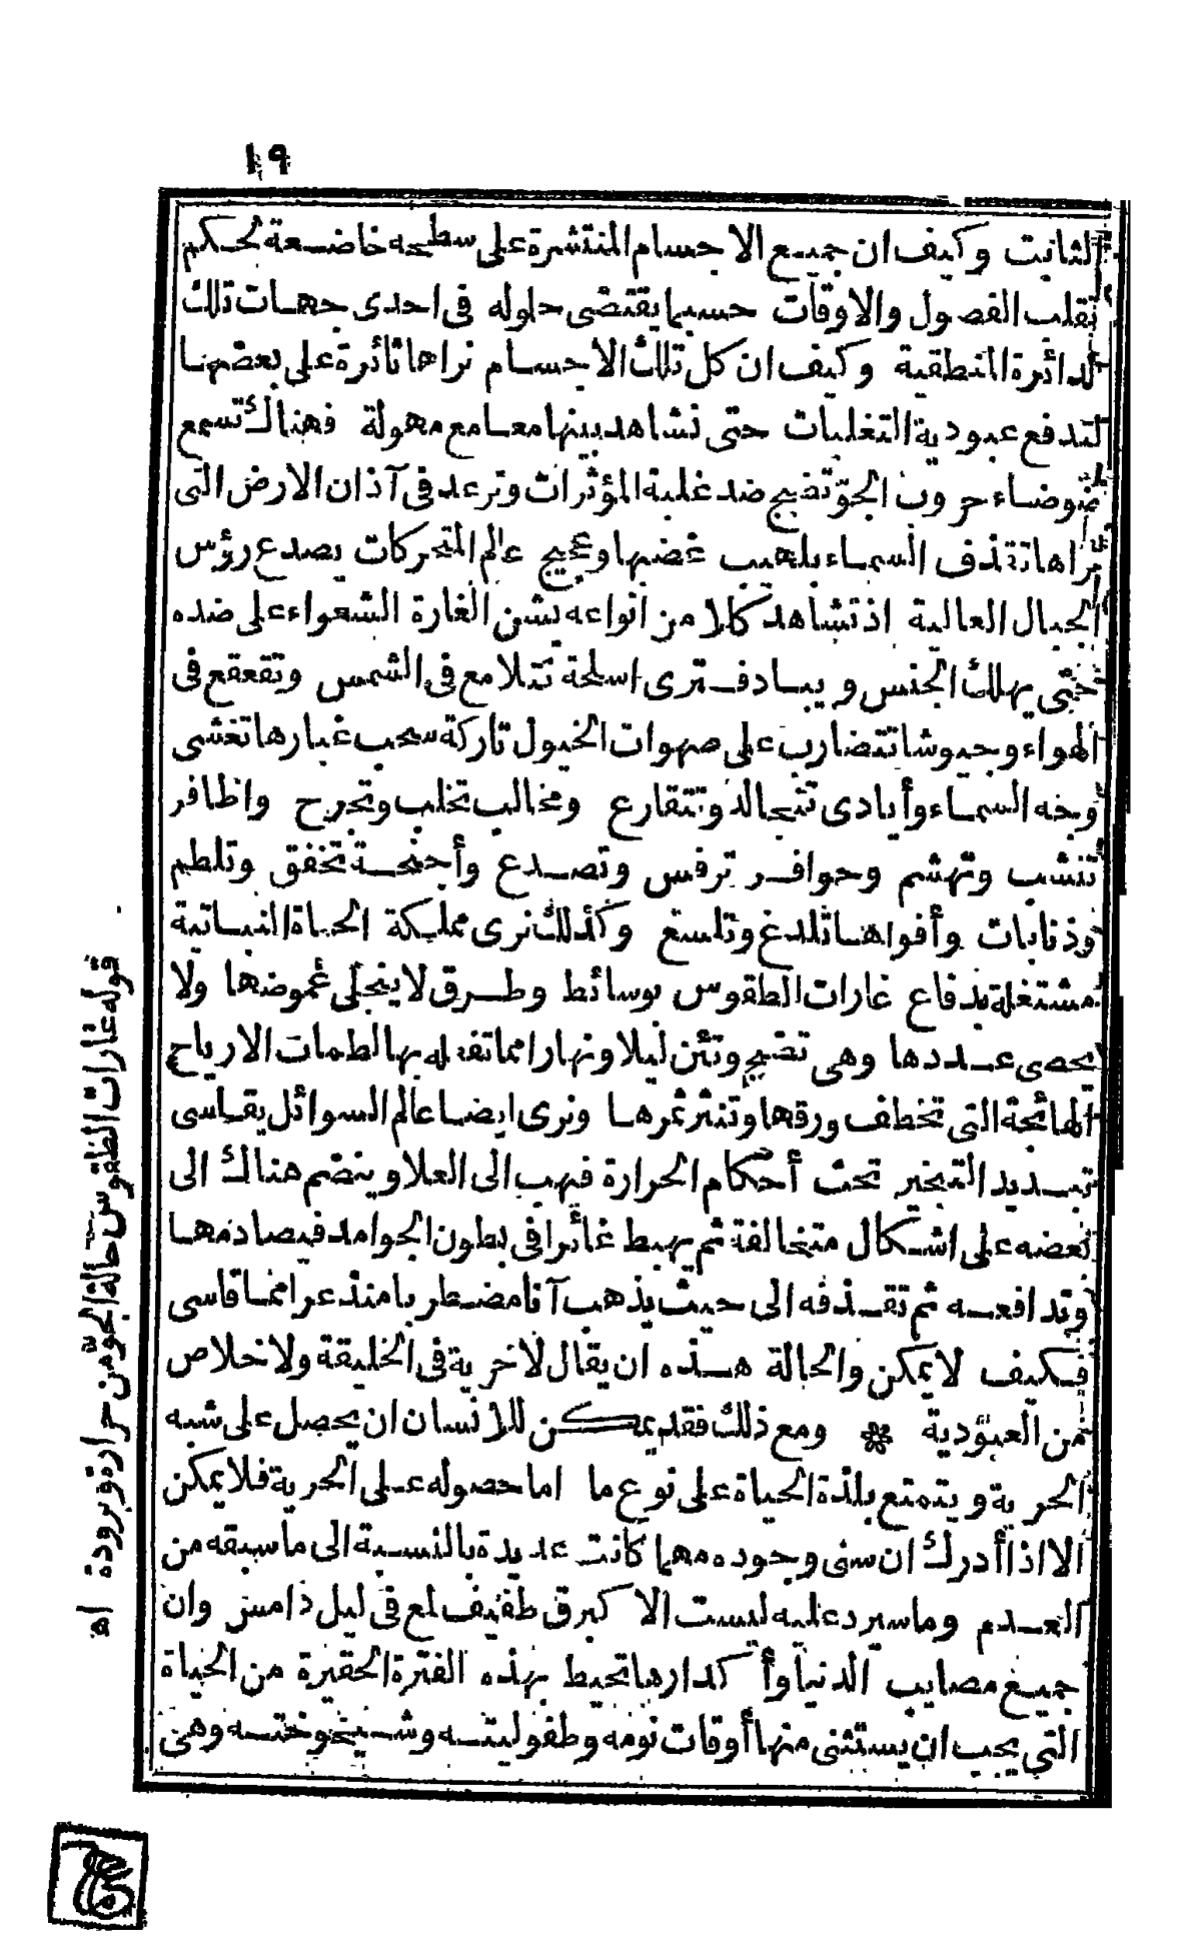 ١٩
الثابت وكيف ان جميع الاجسام المنتشرة على سطحه خاضعة لحكم
تقلب الفصول والاوقات حسبما يقتضى حلوله فى احدى جهات تلك
الدائرة المنطقية وكيف ان كل تلك الاجسام نراها ثائرة على بعضها
لتدفع عبودية التغلبات حتى نشاهد بينها معامع مهولة فهناك تسمع
ضوضاء حروب الجوّ تضج ضد غلبة المؤثرات وترعد فى آذان الارض التى
نراها تقذف السماء بلهيب غضبها وعجيج عالم المتحركات يصدع رؤس
الجبال العالية اذ تشاهد كلا من انواعه يشن الغارة الشعواء على ضده
حتى يهلك الجنس ويباد فترى اسلحة تتلامع فى الشمس وتقعقع فى
الهواء وجيوشا تتضارب على صهوات الخيول تاركة سحب غبارها تغشى
وجه السماء وأيادى تتجالد وتتقارع ومخالب تخلب وتجرح واظافر
تنشب وتهشم وحوافر ترفس وتصدع وأجنحة تخفق وتلطم
وذنابات وأفواها تلدغ وتلسع وكذلك نرى مملكة الحياة النباتية
مشتغلة بدفاع غارات الطقوس بوسائط وطرق لا ينجلى غموضها ولا
يحصى عددها وهى تضج وتئن ليلا ونهارا مما تفعله بها لطمات الارياح
الهائجة التى تخطف ورقها وتنثر ثمرها ونرى ايضا عالم السوائل يقاسى
تبديد التبخير تحت أحكام الحرارة فيهب الى العلا وينضم هناك الى
بعضه على اشكال متخالفة ثم يهبط غائرا فى بطون الجوامد فيصادمها
وتدافعه ثم تقذفه الى حيث يذهب آنا مضطربا منذعرا مما قاسى
فكيف لا يمكن والحالة هذه ان يقال لا حرية فى الخليقة ولا خلاص
من العبودية * ومع ذلك فقد يمكن للانسان ان يحصل على شبه
الحرية ويتمتع بلذة الحياة على نوع ما اما حصوله على الحرية فلا يمكن
الا اذا أدرك ان سنى وجوده مهما كانت عديدة بالنسبة الى ما سبقه من
العدم وما سيرد عليه ليست الا كبرق طفيف لمع فى ليل دامس وان
جميع مصايب الدنيا وأكدارها تحيط بهذه الفترة الحقيرة من الحياة
التى يجب ان يستثنى منها أوقات نومه وطفوليته وشيخوخته وهى
قوله غارات الطقوس حالة الجوّ من حرارة وبرودة اه